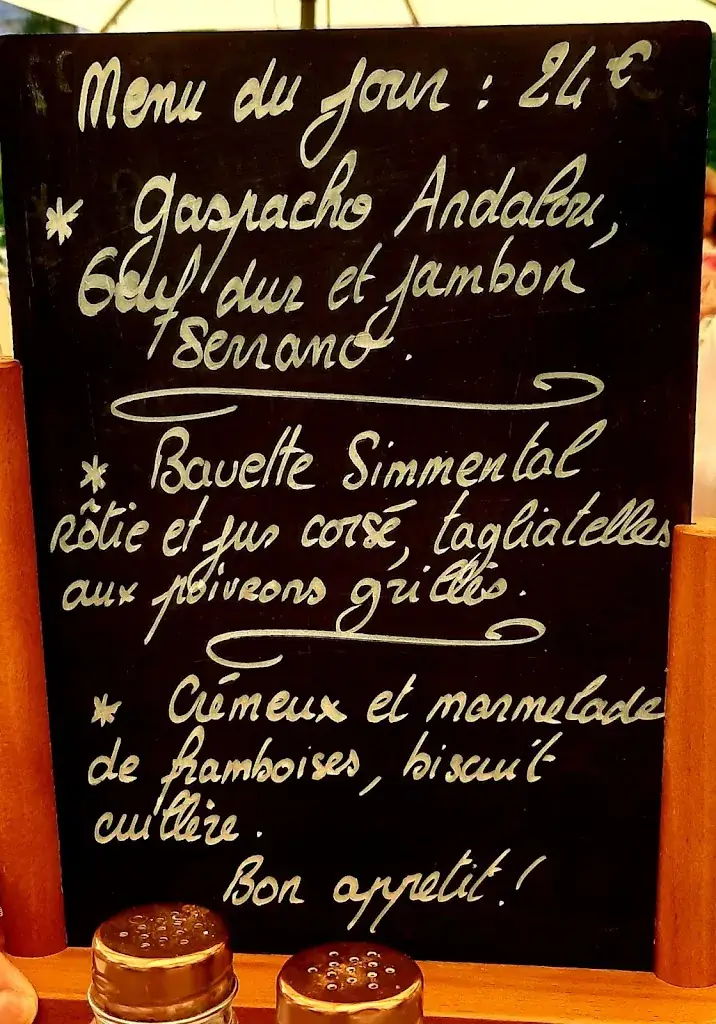 Menu du jour : 24 €
* Gaspacho Andalou,
Oeuf dur et jambon
Serrano.
* Bavette Simmental
rôtie et jus corsé, tagliatelles
aux poivrons grillés.
* Crémeux et marmelade
de framboises, biscuit
cuillère.
Bon appetit !